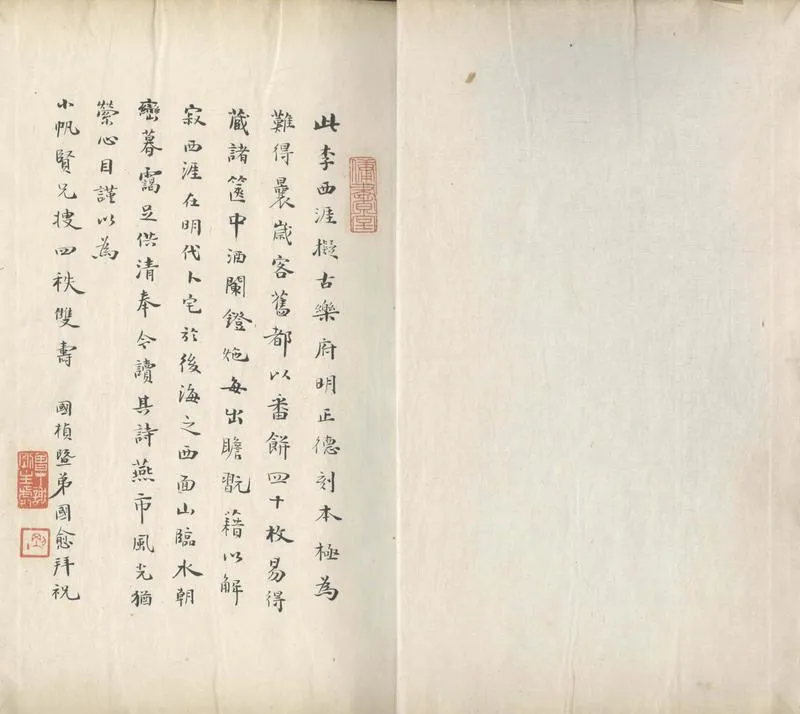 此李西涯擬古樂府明正德刻本極為
難得曩歲客舊都以番餅四十枚易得
藏諸篋中酒闌鐙灺每出瞻翫藉以解
寂西涯在明代卜宅於後海之西面山臨水朝
巒暮靄足供清奉今讀其詩燕市風光猶
縈心目謹以為
小帆賢兄嫂四秩雙壽　國楨暨弟國愈拜祝